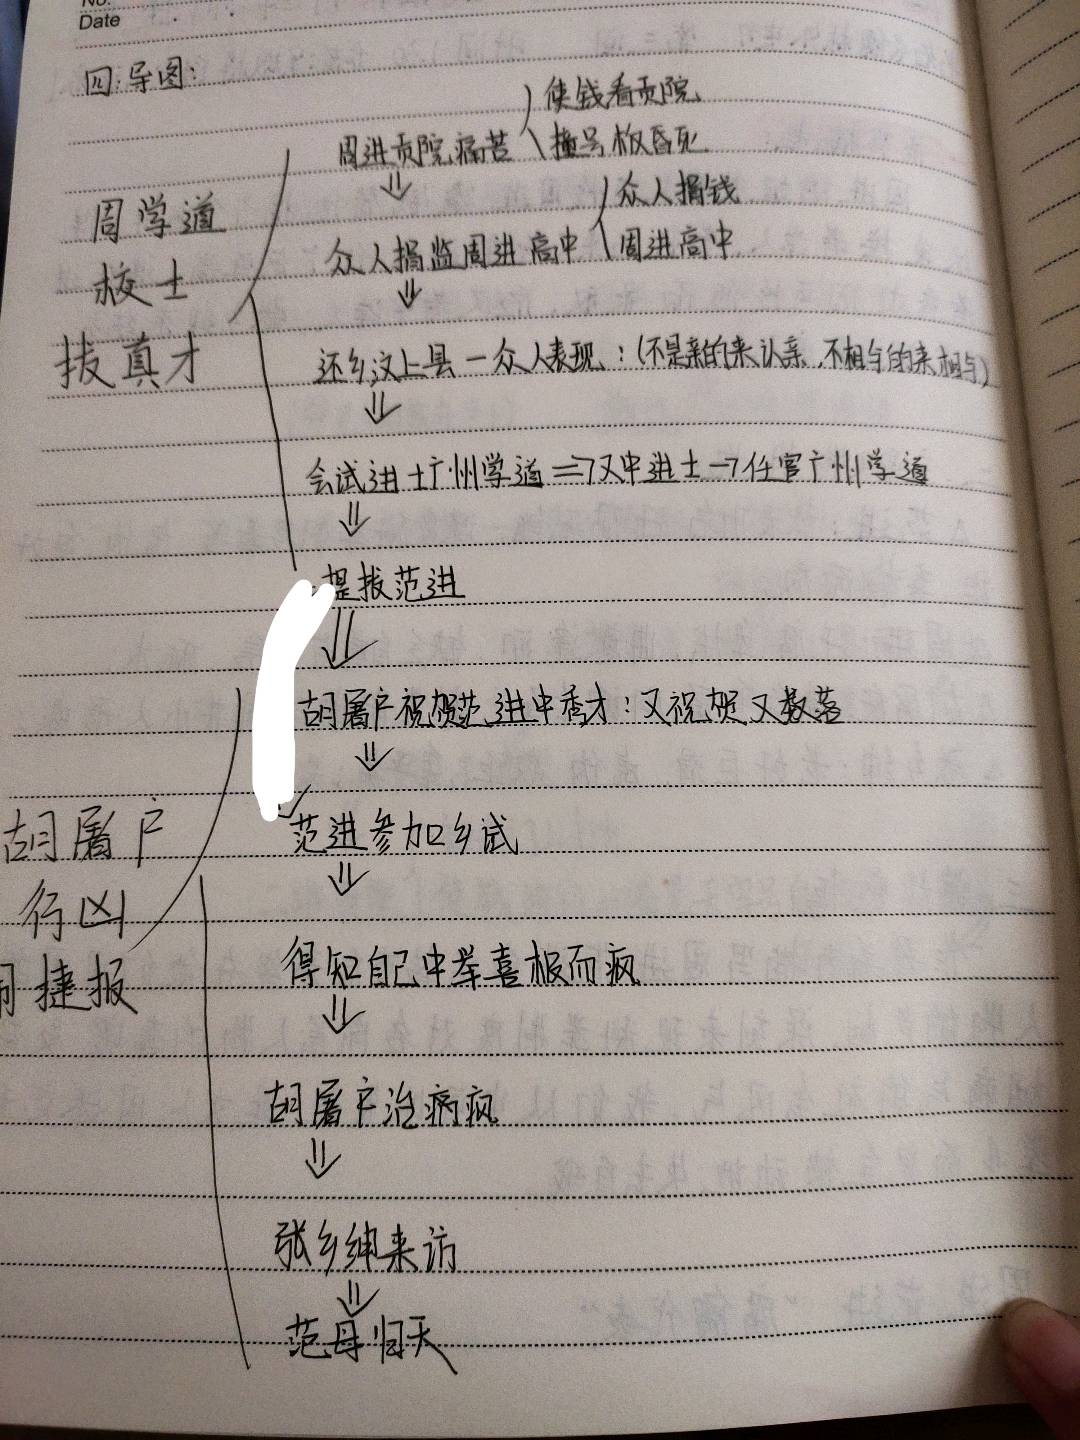 No.
Date
四.导图:
使钱看贡院
周进贡院痛苦
撞号板昏死
众人捐钱
周学道
众人捐监周进高中
周进高中
校士
拔真才
还乡汶上县一众人表现:(不是亲的来认亲,不相与的来相与)
会试进士广州学道⇒又中进士→任官广州学道
提拔范进
胡屠户祝贺范进中秀才:又祝贺又数落
胡屠户
范进参加乡试
行凶
闹捷报
得知自己中举喜极而疯
胡屠户治病疯
张乡绅来访
范母归天